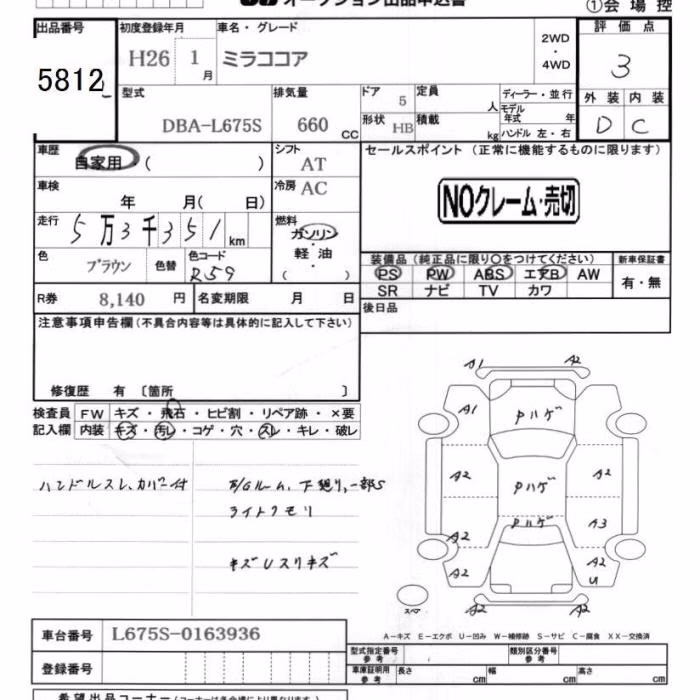 オークション出品申込書
①会場控
出品番号 5812
初度登録年月 H26 1月
車名・グレード ミラココア
2WD・4WD
評価点 3
外装 D 内装 C
型式 DBA-L675S
排気量 660 CC
ドア 5 定員 人
形状 HB 積載 kg
ディーラー・並行
モデル年式 年
ハンドル 左・右
車歴 自家用 ( )
シフト AT
セールスポイント(正常に機能するものに限ります)
NOクレーム・売切
車検 年 月( 日)
冷房 AC
走行 5万3千351 km
燃料 ガソリン・軽油・( )
色 ブラウン 色替 色コード R59
装備品(純正品に限り〇をつけてください) 新車保証書
PS PW ABS エアB AW 有・無
SR ナビ TV カワ
R券 8,140 円 名変期限 月 日
後日品
注意事項申告欄(不具合内容等は具体的に記入して下さい)
修復歴 有 〔箇所 〕
検査員 FW キズ・飛石・ヒビ割・リペア跡・×要
記入欄 内装 キズ・汚レ・コゲ・穴・スレ・キレ・破レ
ハンドルスレ、カバー付
下廻り、一部S
ライトクモリ
キズUスリキズ
A1 A2
A1 Pハゲ
A2 Pハゲ A2
Pハゲ A3
A2 A2
A2 U
スペア A2 A2
A-キズ E-エクボ U-凹み W-補修跡 S-サビ C-腐食 XX-交換済
車台番号 L675S-0163936
登録番号
型式指定番号 参考 類別区分番号 参考
車庫証明用 参考 長さ cm 幅 cm 高さ cm
希望出品コーナー(コーナーは各会場により異なります)